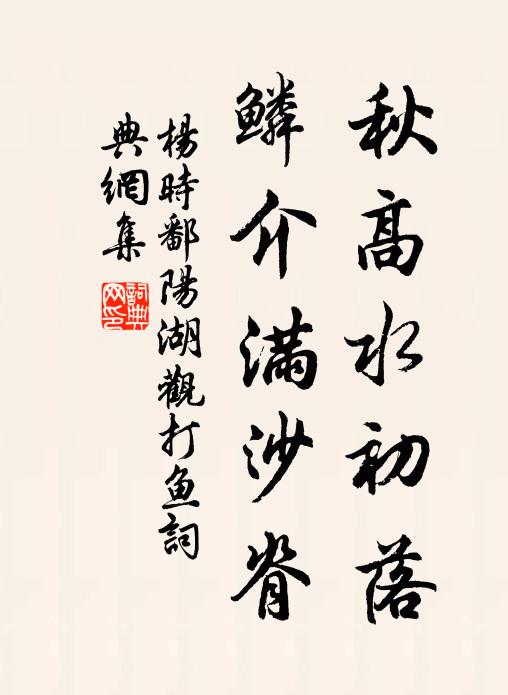 秋高水初落
鱗介滿沙脊
楊時鄱陽湖觀打鱼詞
典網集
詞典
网印